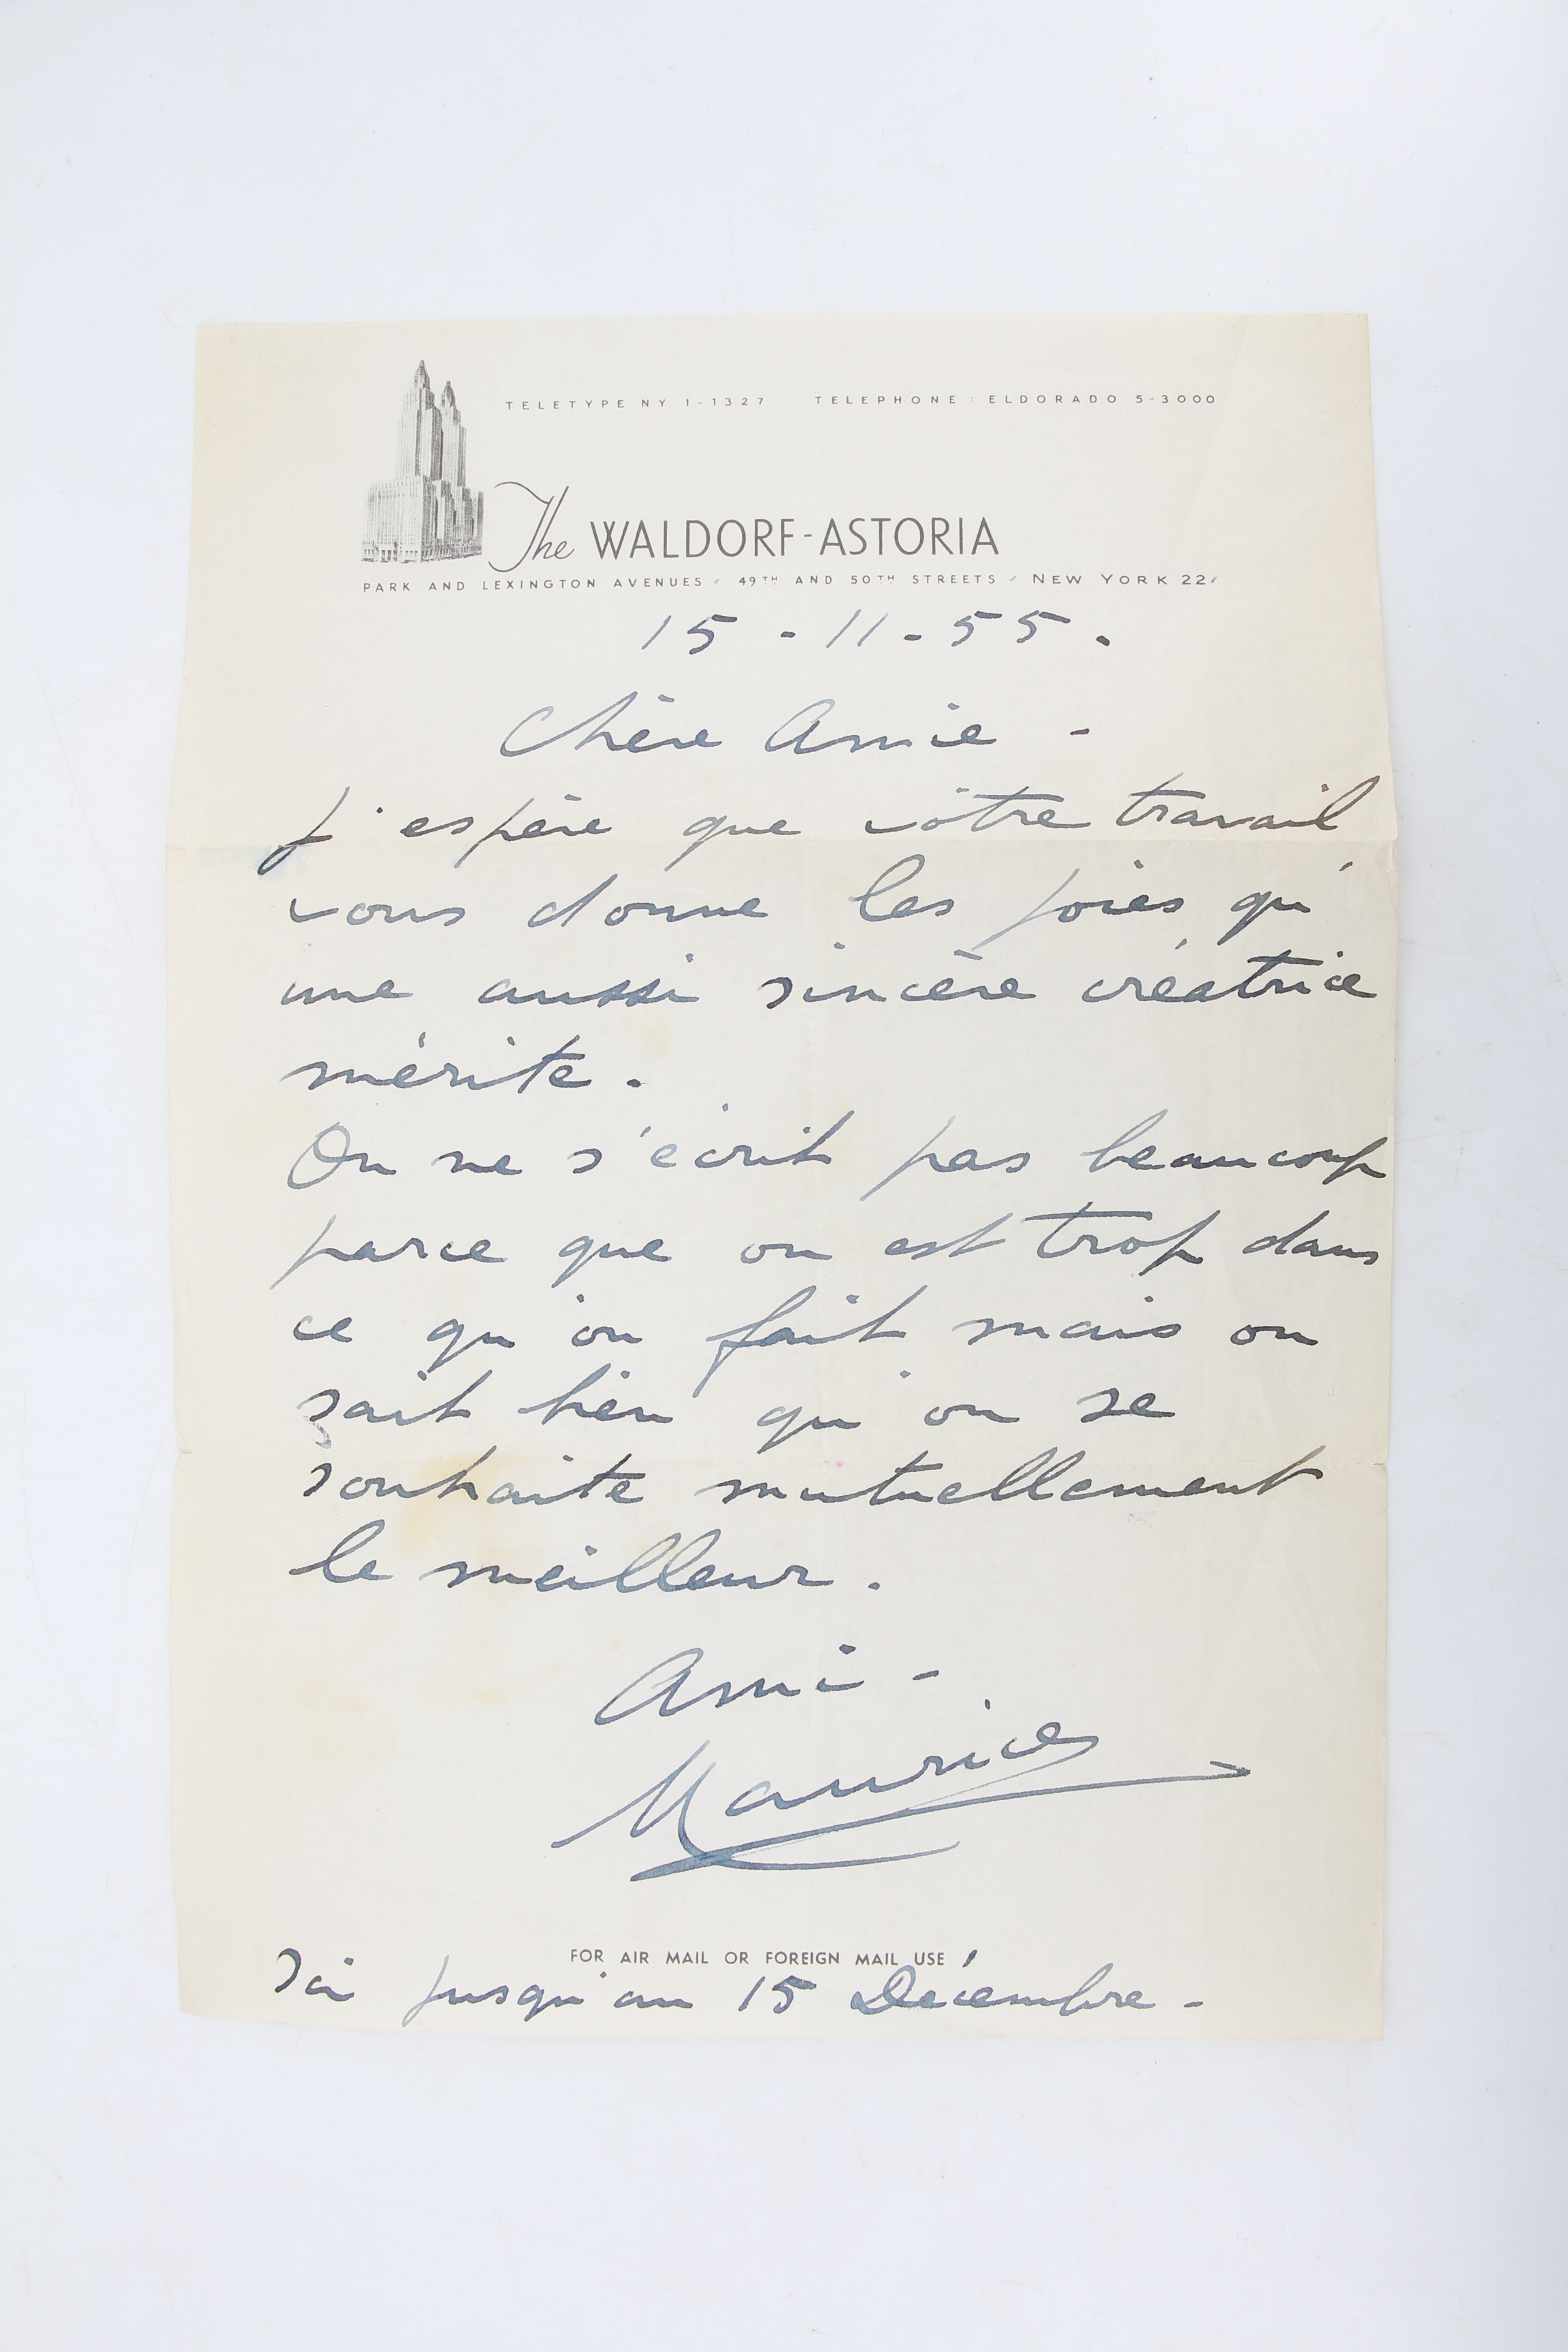 TELETYPE NY 1-1327 TELEPHONE: ELDORADO 5-3000
The WALDORF-ASTORIA
PARK AND LEXINGTON AVENUES / 49TH AND 50TH STREETS / NEW YORK 22/
15 - 11 - 55.
Chère Amie -
J'espère que vôtre travail
vous donne les joies qu'
une aussi sincère créatrice
mérite.
On ne s'écrit pas beaucoup
parce que on est trop dans
ce qu'on fait mais on
sait bien qu'on se
souhaite mutuellement
le meilleur.
Ami -
Maurice
FOR AIR MAIL OR FOREIGN MAIL USE
Ici jusqu'au 15 Décembre -